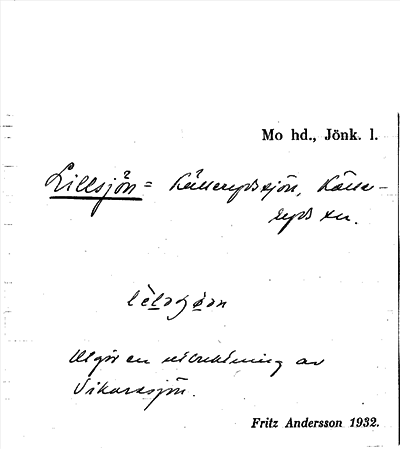 Mo hd., Jönk. l.
Lillsjön = Källerydssjön, Källe-
ryds sn.
Utgör en utbuktning av
Vikaresjön.
Fritz Andersson 1932.